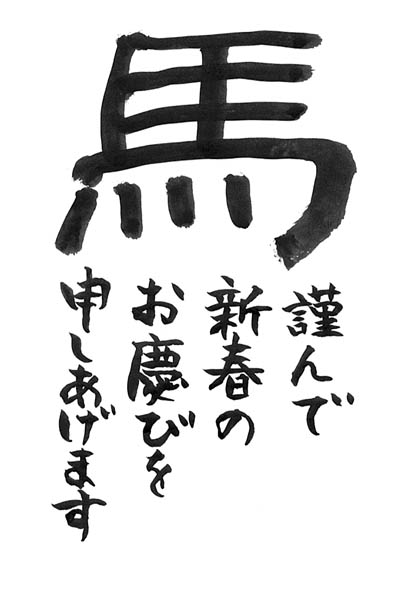 馬
謹んで
新春の
お慶びを
申しあげます